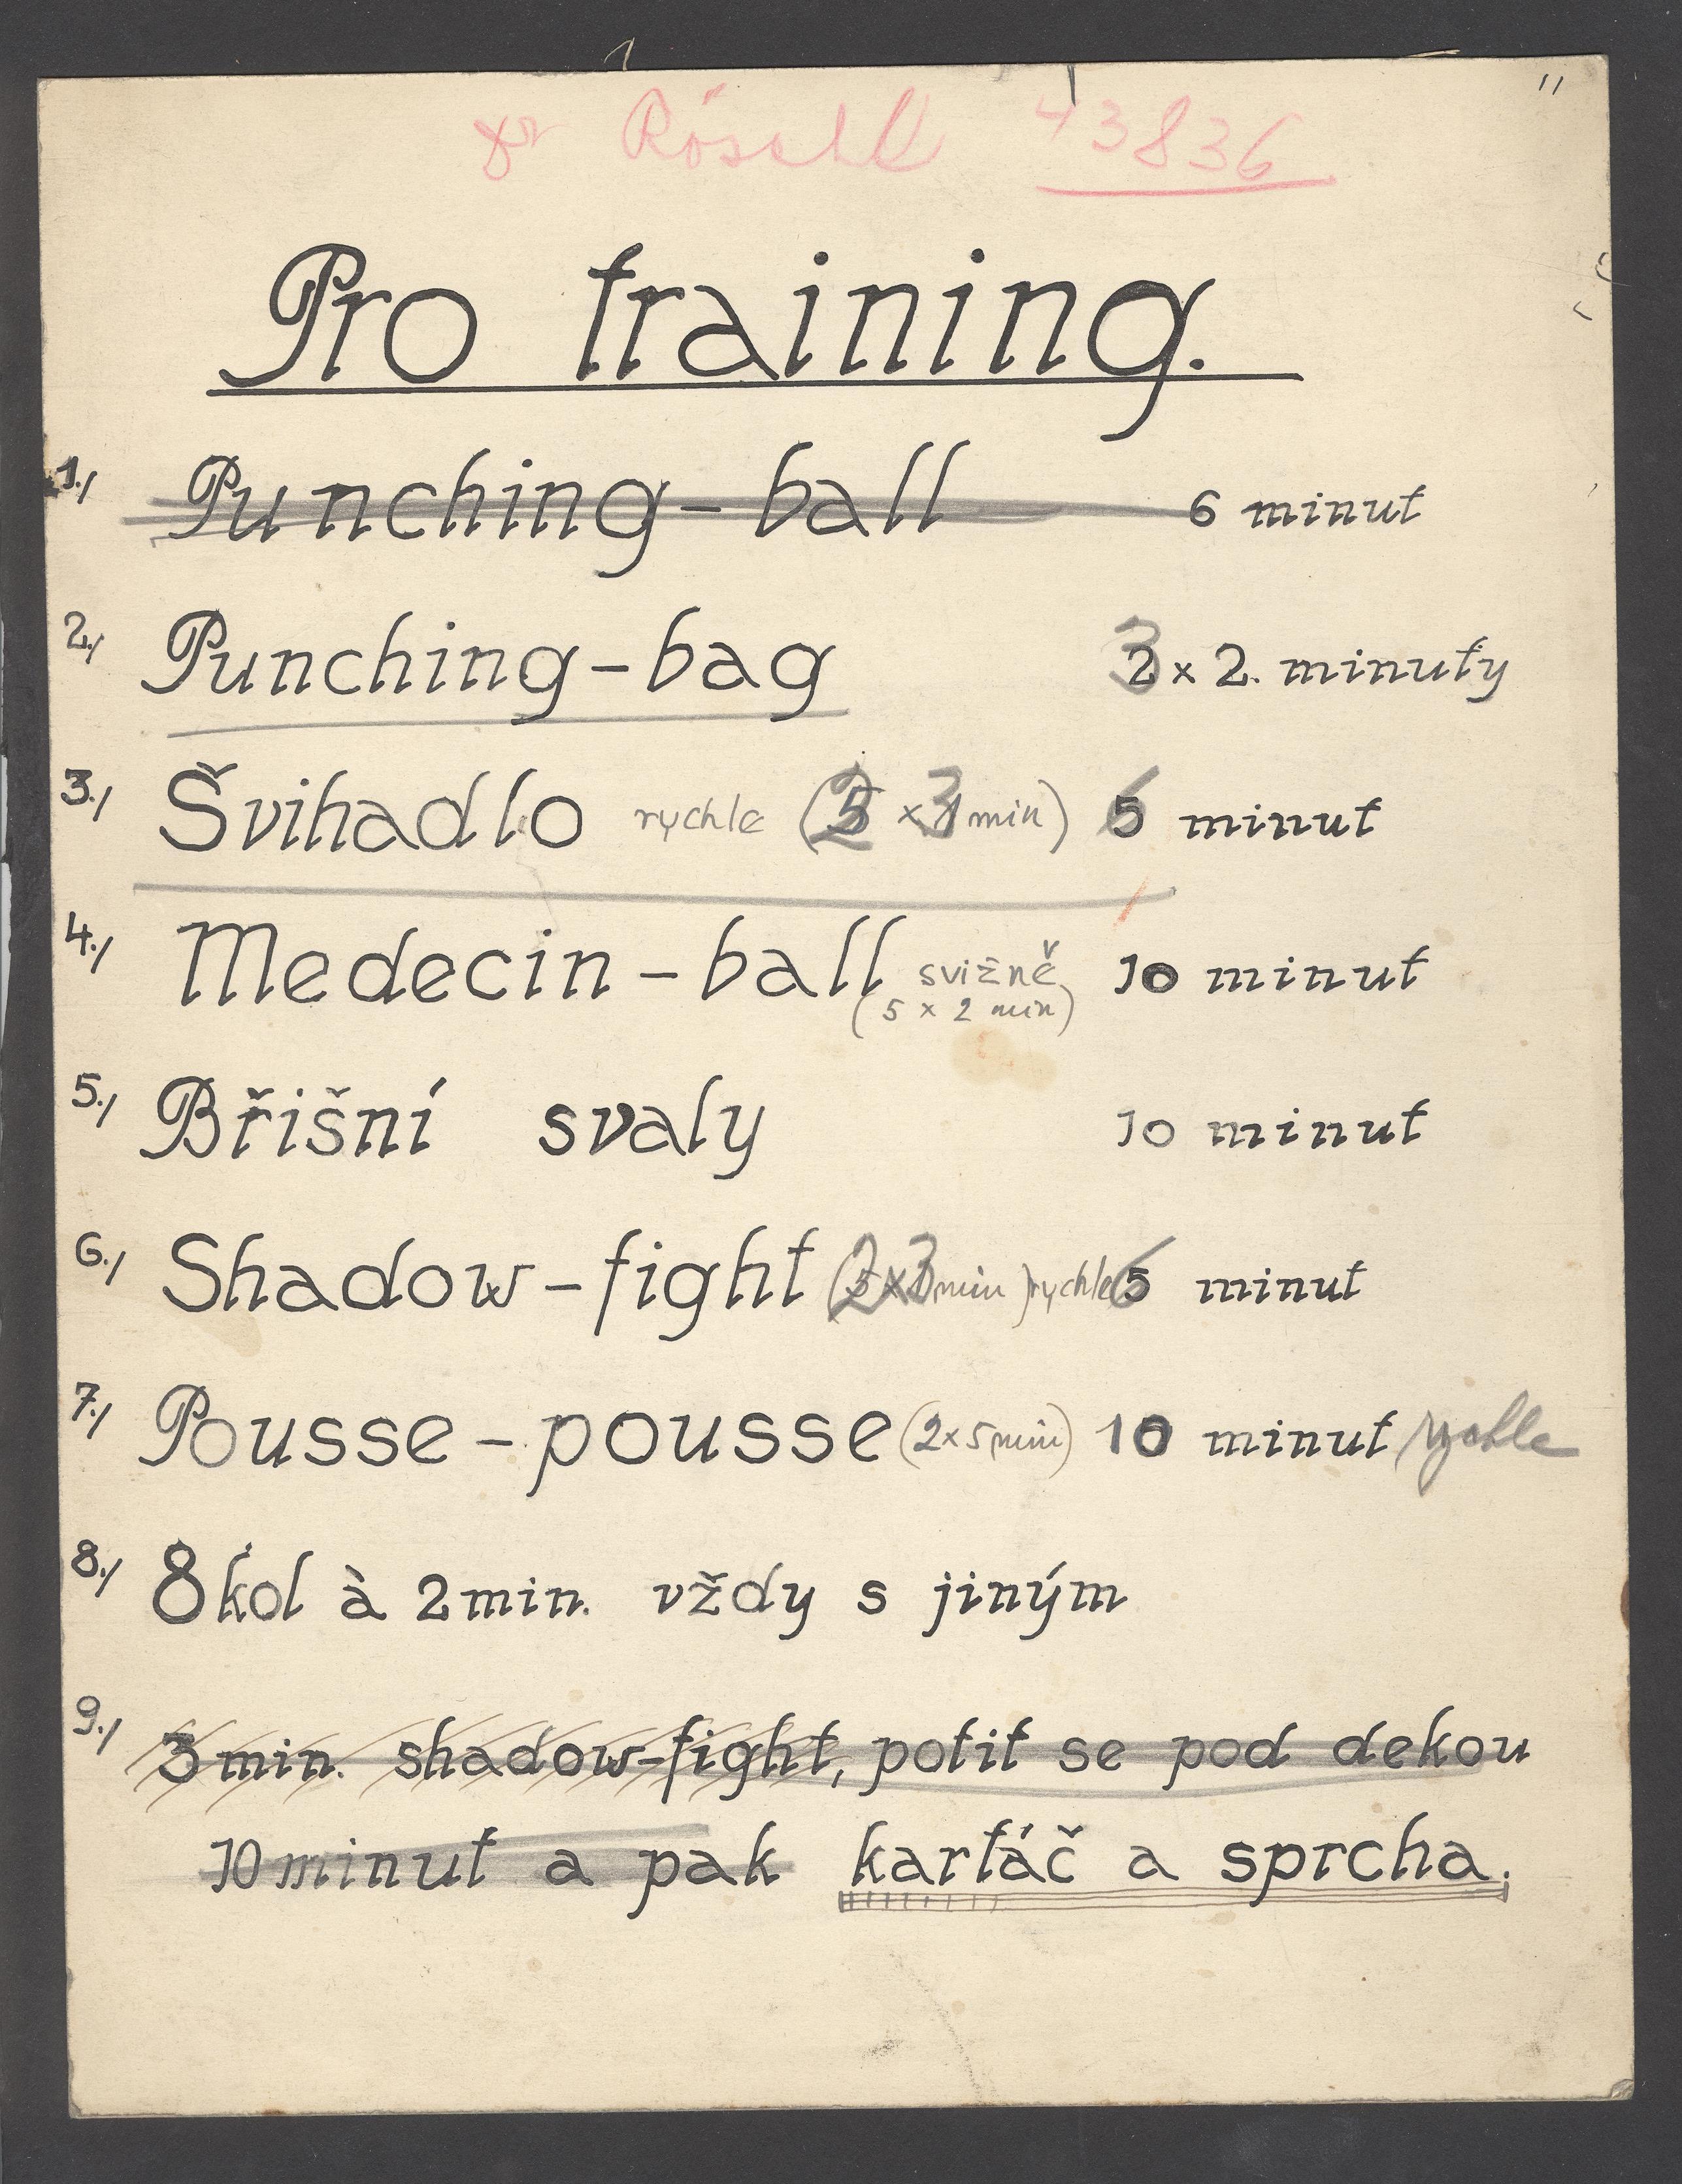 43836
Pro training.
1./ Punching-ball 6 minut
2./ Punching-bag 3 x 2. minuty
3./ Švihadlo rychle (2 x 3 min) 6 minut
4./ Medecin-ball svižně 10 minut
(5 x 2 min)
5./ Břišní svaly 10 minut
6./ Shadow-fight (2x3 min) rychle 6 minut
7./ Pousse-pousse (2x5 min) 10 minut rychle
8./ 8 kol à 2 min. vždy s jiným
9./ 3 min. shadow-fight, potit se pod dekou
10 minut a pak kartáč a sprcha.